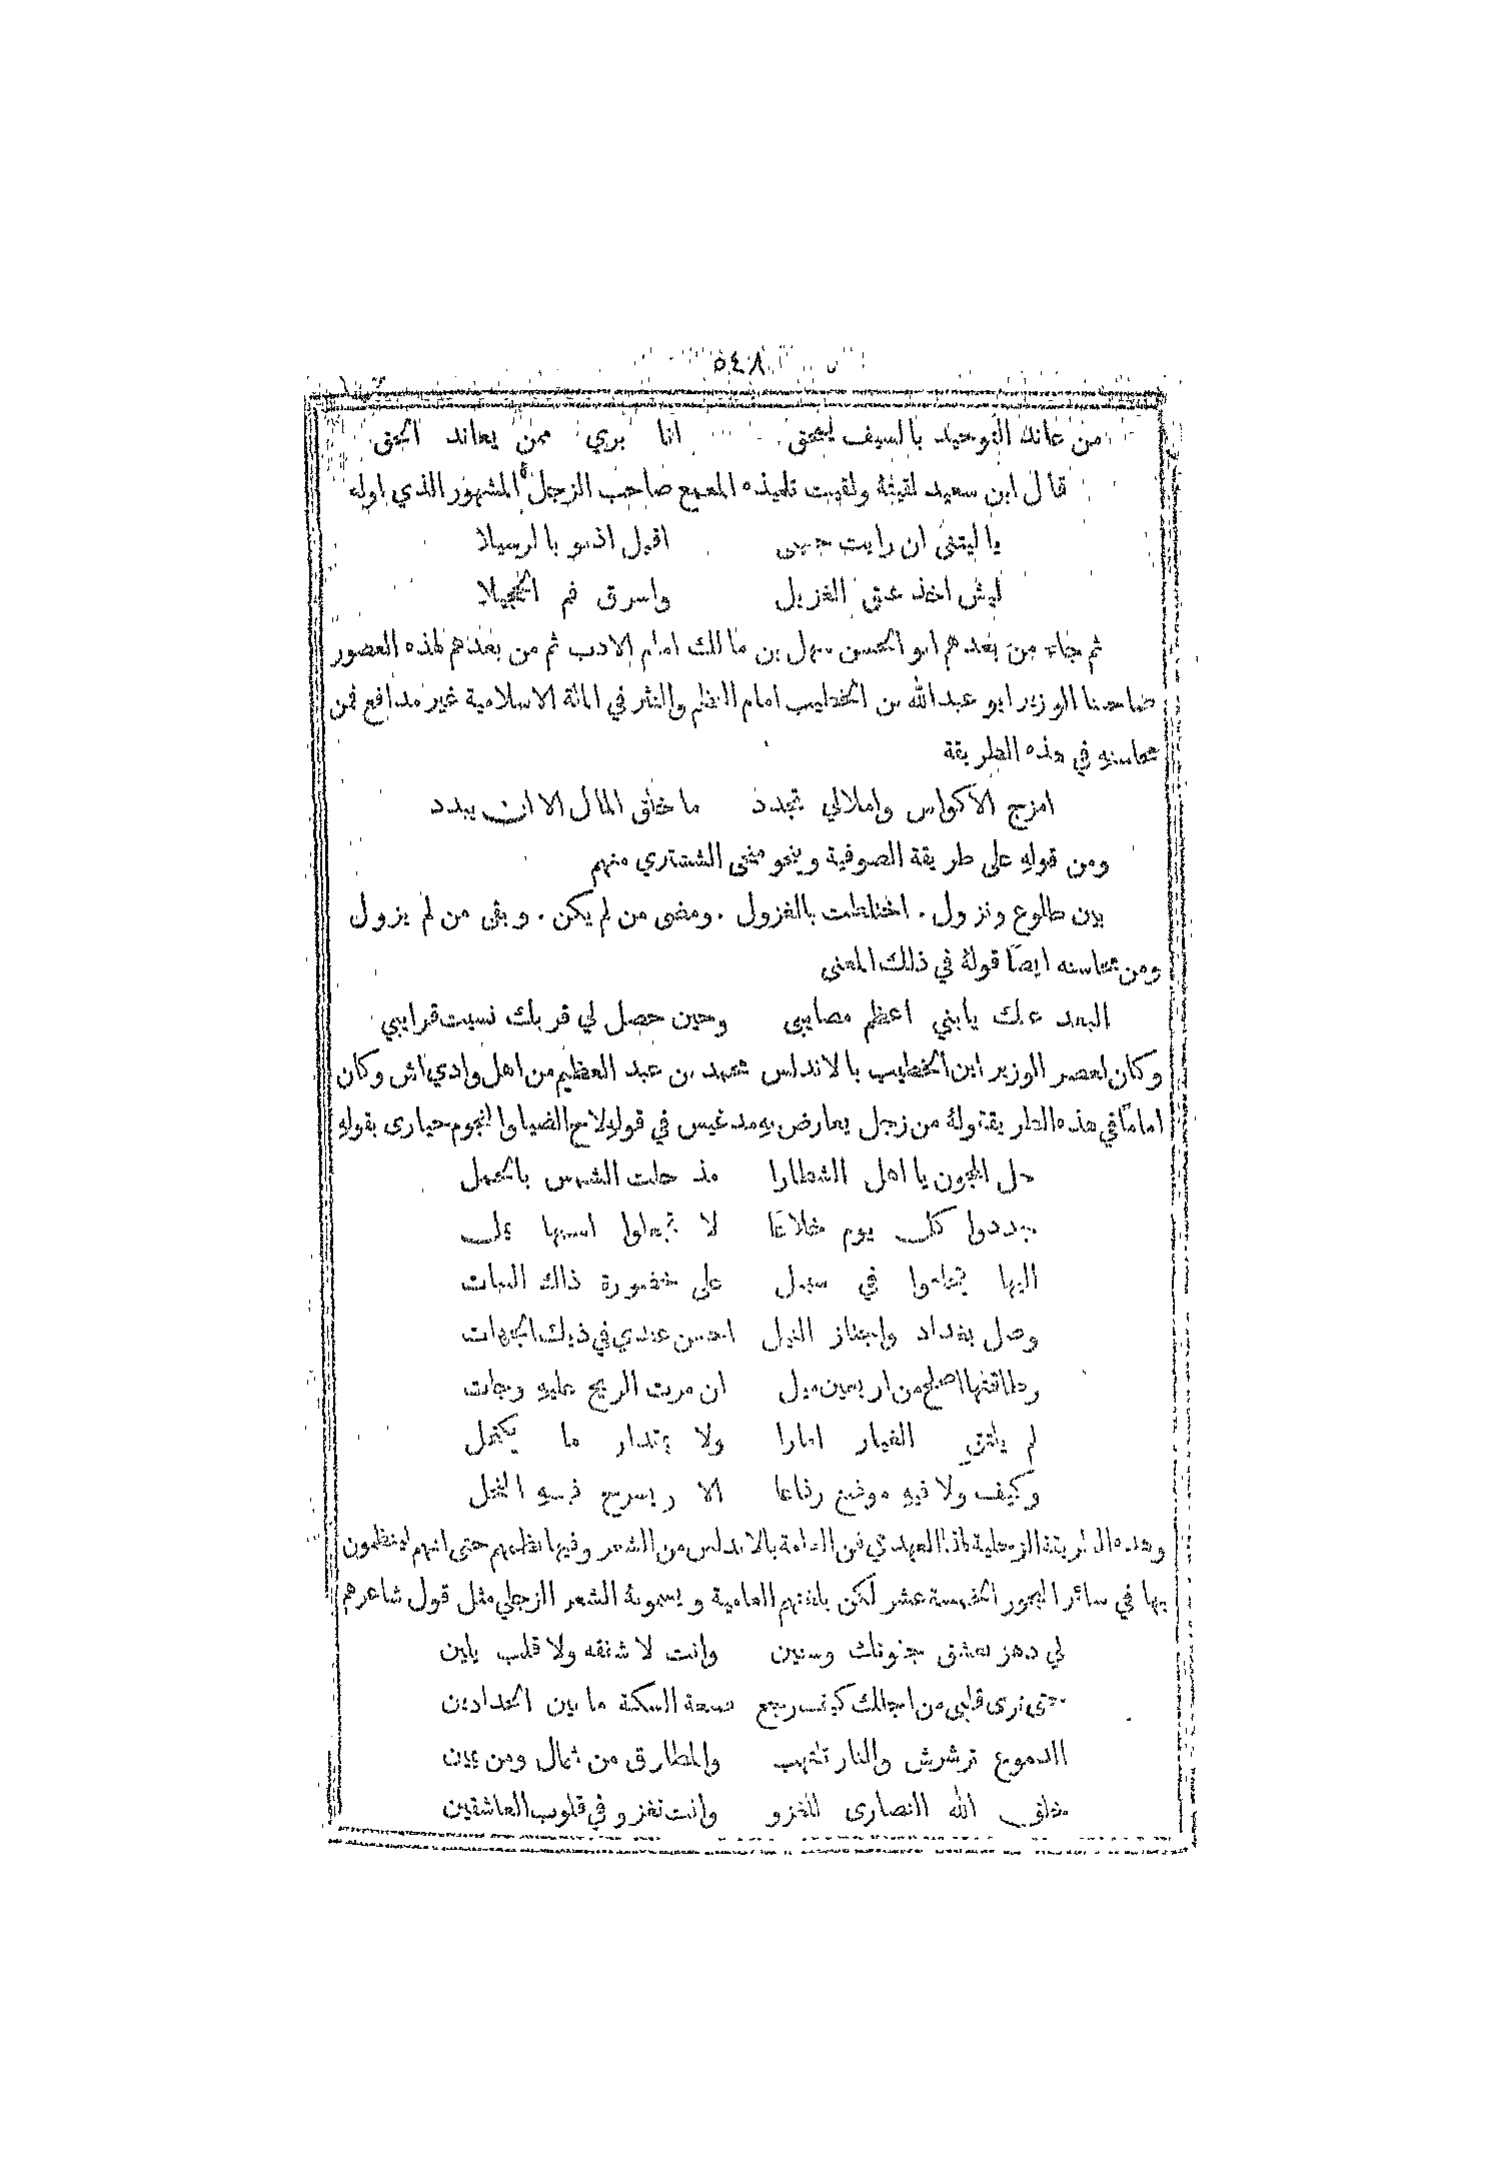 ٥٤٨
من عاند التوحيد بالسيف يمحق انا بري ممن يعاند الحق
قال ابن سعيد لقيته ولقيت تلميذه المعمع صاحب الزجل المشهور الذي اوله
يا ليتني ان رايت حبيبي اقبل اذنو بالرسيلا
ليش اخذ عنق الغزيل واسرق فم الحجيلا
ثم جاء من بعدهم ابو الحسن سهل بن مالك امام الادب ثم من بعدهم لهذه العصور
صاحبنا الوزير ابو عبد الله بن الخطيب امام النظم والنثر في الملة الاسلامية غير مدافع فمن
محاسنه في هذه الطريقة
امزج الاكواس واملالي تجدد ما خلق المال الا ان يبدد
ومن قوله على طريقة الصوفية وينحو منحى الششتري منهم
بين طلوع ونزول. اختلطت بالغزول. ومضى من لم يكن. وبقى من لم يزول
ومن محاسنه ايضاً قولهُ في ذلك المعنى
البعد عنك يا بني اعظم مصايبي وحين حصل لي قربك نسيت قرايبي
وكان لعصر الوزير ابن الخطيب بالاندلس محمد بن عبد العظيم من اهل وادي اش وكان
اماماً في هذه الطريقة وله من زجل يعارض به مدغيس في قوله لاح الضيا والنجوم حيارى بقوله
حل المجون يا اهل الشطارا مذ حلت الشمس بالحمل
جددوا كل يوم خلاعا لا تجعلوا اسبها ثمل
اليها تخلعوا في سبيل على خضورة ذاك النبات
وصل بغداد واجتاز النيل احسن عندي في ذيك الجهات
وطاقتها اصلح من اربعين ميل ان مرت الريح عليه وجات
لم يلتق الغبار امارا ولا بمقدار ما يكتحل
وكيف ولا فيه موضع رقاعا الا ويسرح فيه النحل
وهذه الطريقة الزجلية لهذا العهد هي فن العامة بالاندلس من الشعر وفيها نظمهم حتى انهم لينظمون
بها في سائر البحور الخمسة عشر لكن بلغتهم العامية ويسمونهُ الشعر الزجلي مثل قول شاعرهم
لي دهر نعشق جفونك وسنين وانت لا شفقه ولا قلب يلين
حتى ترى قلبي من اجلك كيف رجع صنعة السكة ما بين الحدادين
الدموع ترشرش والنار تلتهب والمطارق من شمال ومن يمين
خلق الله النصارى للغزو وانت تغزو في قلوب العاشقين